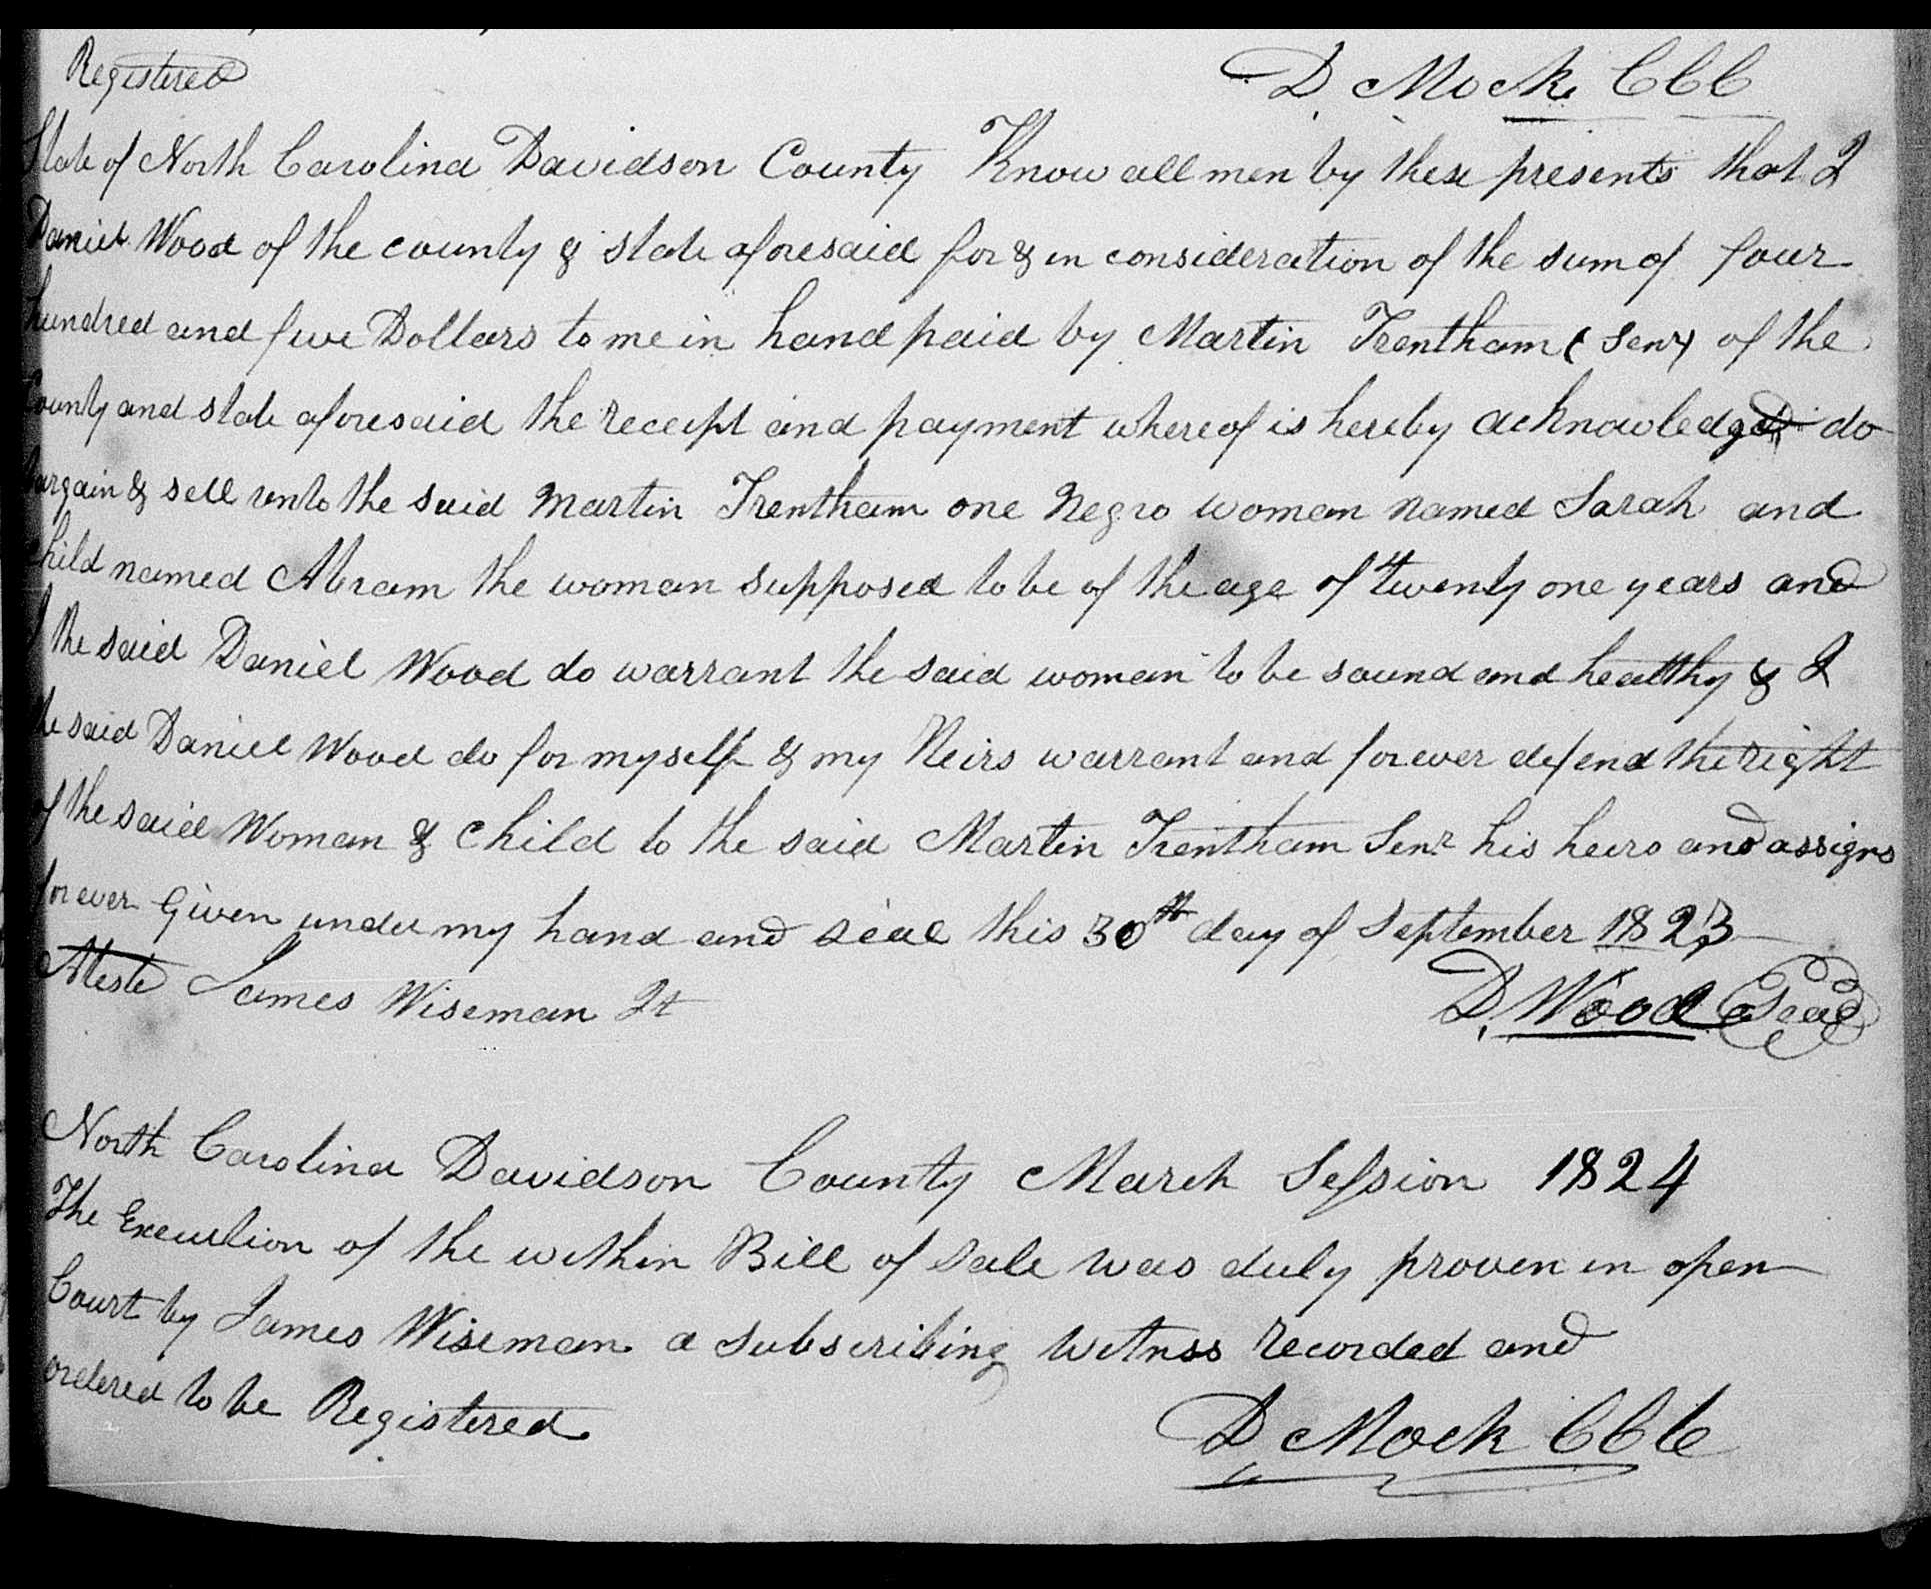 Registered
D Mock CCC
State of North Carolina Davidson County Know all men by these presents that I
Daniel Wood of the county & state aforesaid for & in consideration of the sum of four
hundred and five Dollars to me in hand paid by Martin Trentham (Senr) of the
County and state aforesaid the receipt and payment whereof is hereby acknowledged do
bargain & sell unto the said Martin Trentham one Negro woman named Sarah and
child named Abram the woman supposed to be of the age of twenty one years and
I the said Daniel Wood do warrant the said woman to be sound and healthy & I
the said Daniel Wood do for myself & my Heirs warrant and forever defend the right
of the said Woman & Child to the said Martin Trentham Senr his heirs and assigns
forever Given under my hand and seal this 30th day of September 1823
Atteste James Wiseman Jt
D. Wood Seal
North Carolina Davidson County March Session 1824
The Execution of the within Bill of sale was duly proven in open
Court by James Wiseman a subscribing witnss recorded and
ordered to be Registered.
D Mock CCC